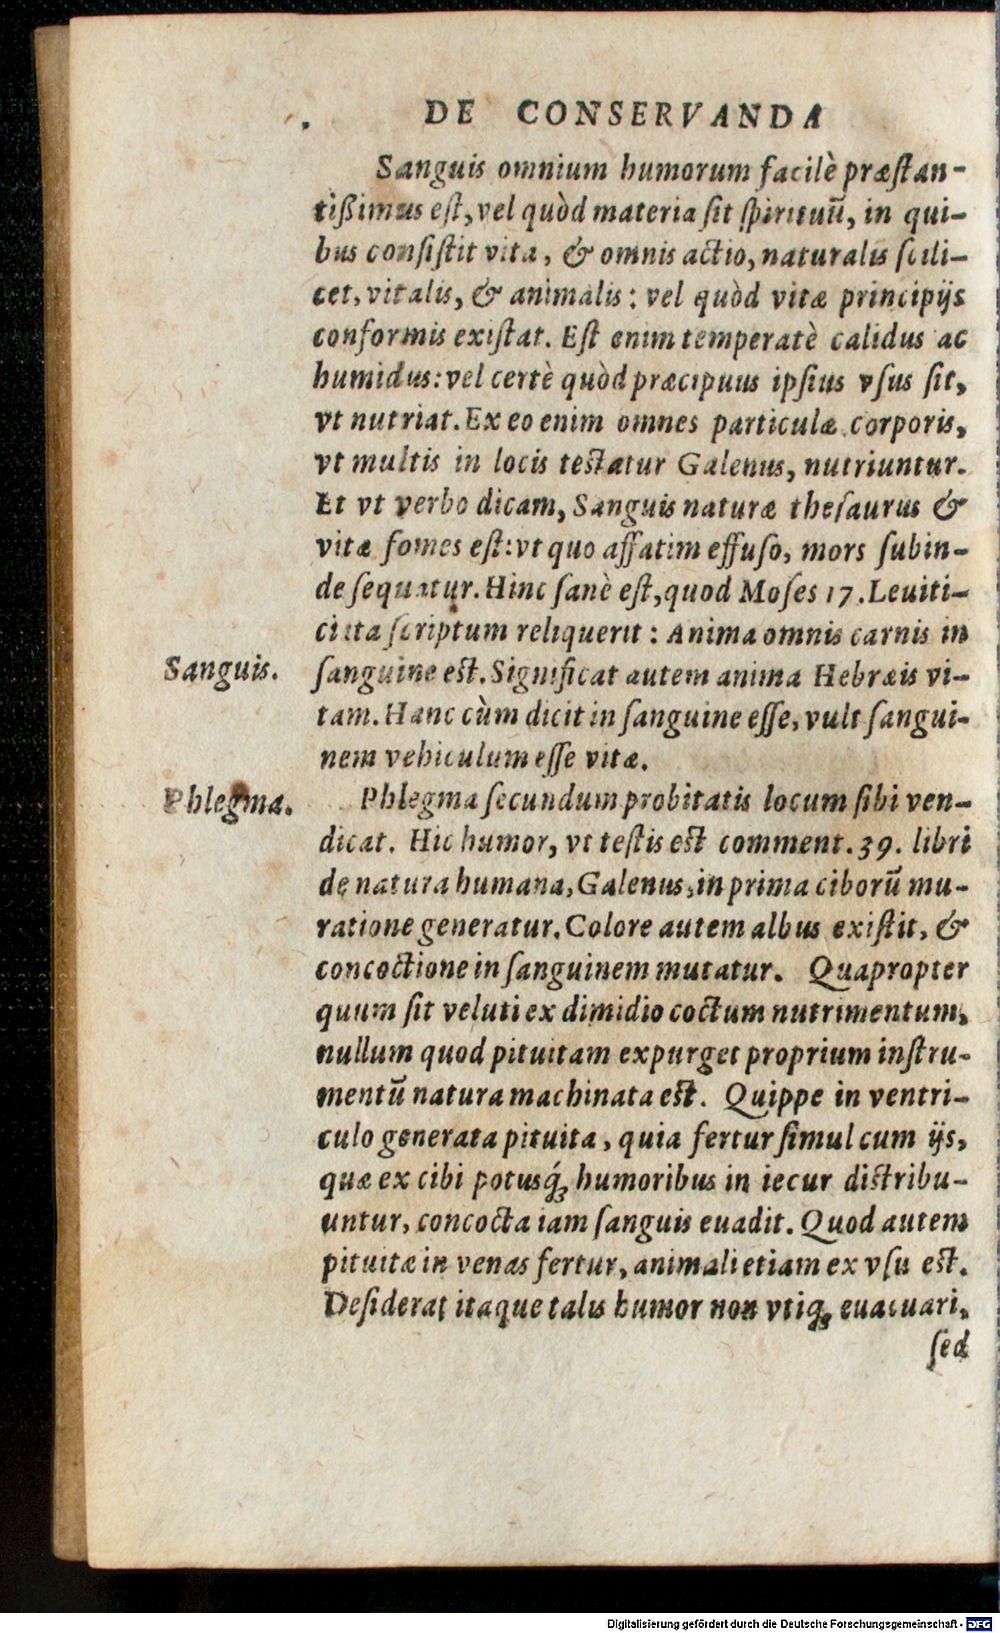 DE CONSERVANDA
Sanguis omnium humorum facilè præſtan-
tißimus eſt, vel quòd materia ſit ſpirituũ, in qui-
bus conſiſtit vita, & omnis actio, naturalis ſcili-
cet, vitalis, & animalis: vel quòd vitæ principijs
conformis exiſtat. Eſt enim temperatè calidus ac
humidus: vel certè quòd præcipuus ipſius vſus ſit,
vt nutriat. Ex eo enim omnes particulæ corporis,
vt multis in locis teſtatur Galenus, nutriuntur.
Et vt verbo dicam, Sanguis naturæ theſaurus &
vitæ fomes eſt: vt quo affatim effuſo, mors ſubin-
de ſequatur. Hinc ſanè eſt, quod Moſes 17. Leuiti-
ci ita ſcriptum reliquerit: Anima omnis carnis in
Sanguis.
ſanguine eſt. Significat autem anima Hebræis vi-
tam. Hanc cùm dicit in ſanguine eſſe, vult ſangui-
nem vehiculum eſſe vitæ.
Phlegma.
Phlegma ſecundum probitatis locum ſibi ven-
dicat. Hic humor, vt teſtis eſt comment. 39. libri
de natura humana, Galenus, in prima ciborũ mu-
ratione generatur. Colore autem albus exiſtit, &
concoctione in ſanguinem mutatur. Quapropter
quum ſit veluti ex dimidio coctum nutrimentum,
nullum quod pituitam expurget proprium inſtru-
mentũ natura machinata eſt. Quippe in ventri-
culo generata pituita, quia fertur ſimul cum ijs,
quæ ex cibi potusq́; humoribus in iecur diſtribu-
untur, concocta iam ſanguis euadit. Quod autem
pituitæ in venas fertur, animali etiam ex vſu eſt.
Deſiderat itaque talis humor non vtiq; euacuari,
ſed
Digitalisierung gefördert durch die Deutsche Forschungsgemeinschaft - DFG